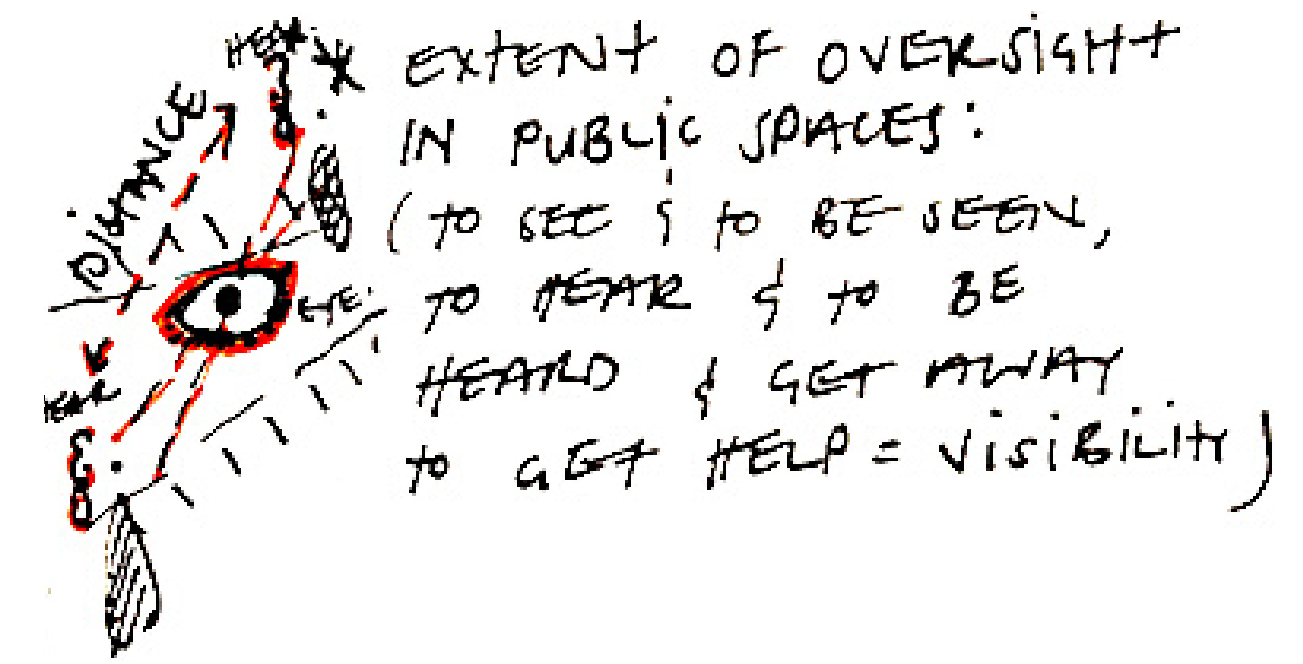 HEAR
DISTANCE
EYE.
EAR
* EXTENT OF OVERSIGHT
IN PUBLIC SPACES:
(TO SEE & TO BE SEEN,
TO HEAR & TO BE
HEARD & GET AWAY
TO GET HELP = VISIBILITY)